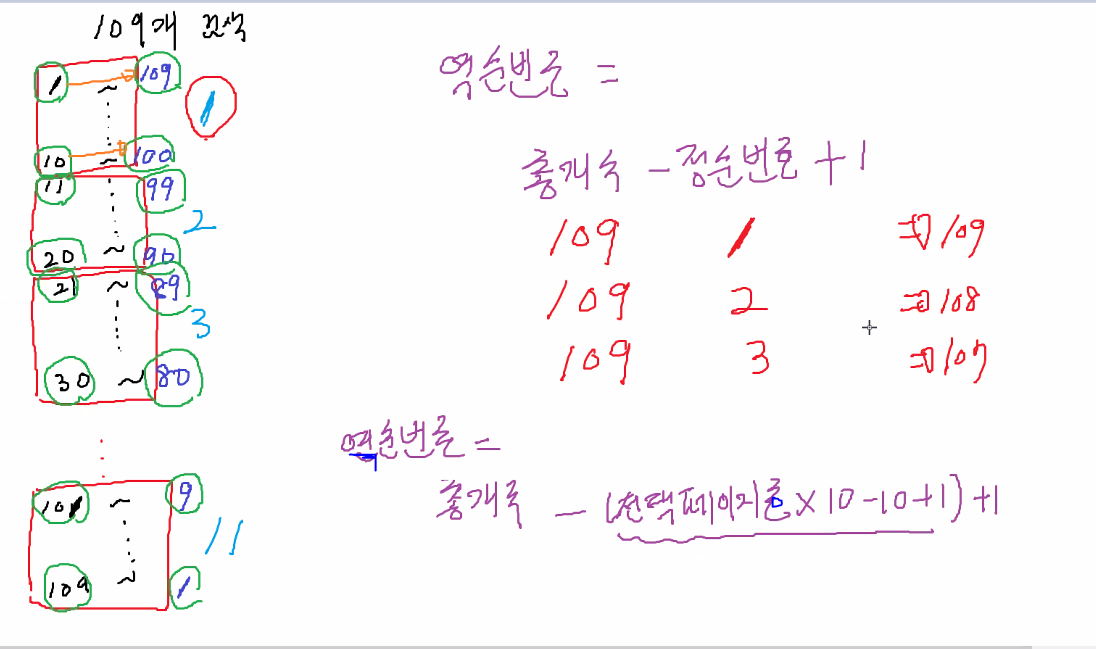 109개 검색
1 ~ 109
1
10 ~ 100
11 99
2
20 ~ 90
21 ~ 89
3
30 ~ 80
101 ~ 9
11
109 ~ 1
역순번호 =
총개수 - 정순번호 + 1
109 1 ⇒ 109
109 2 ⇒ 108
109 3 ⇒ 107
역순번호 =
총개수 - (선택페이지번호 × 10 - 10 + 1) + 1